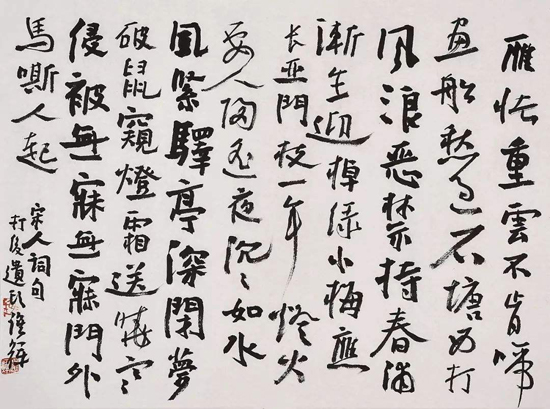 雁怯重雲不肯啼
畫船愁過石塘西打
風浪惡禁持春浦
漸生迎棹綠小梅應
長亞門枝一年燈火
要人歸遙夜沉〻如水
風緊驛亭深閉夢
破鼠窺燈霜送曉寒
侵被無寐無寐門外
馬嘶人起
宋人詞句
打後遺頭